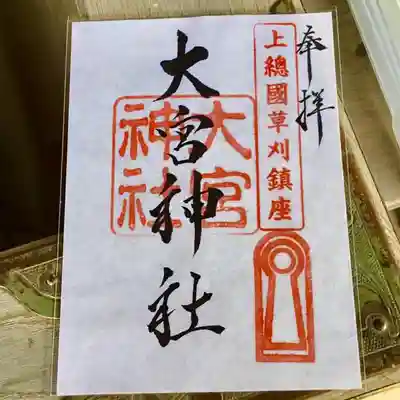 奉拝
上總國草刈鎮座
大宮神社
大宮
神社